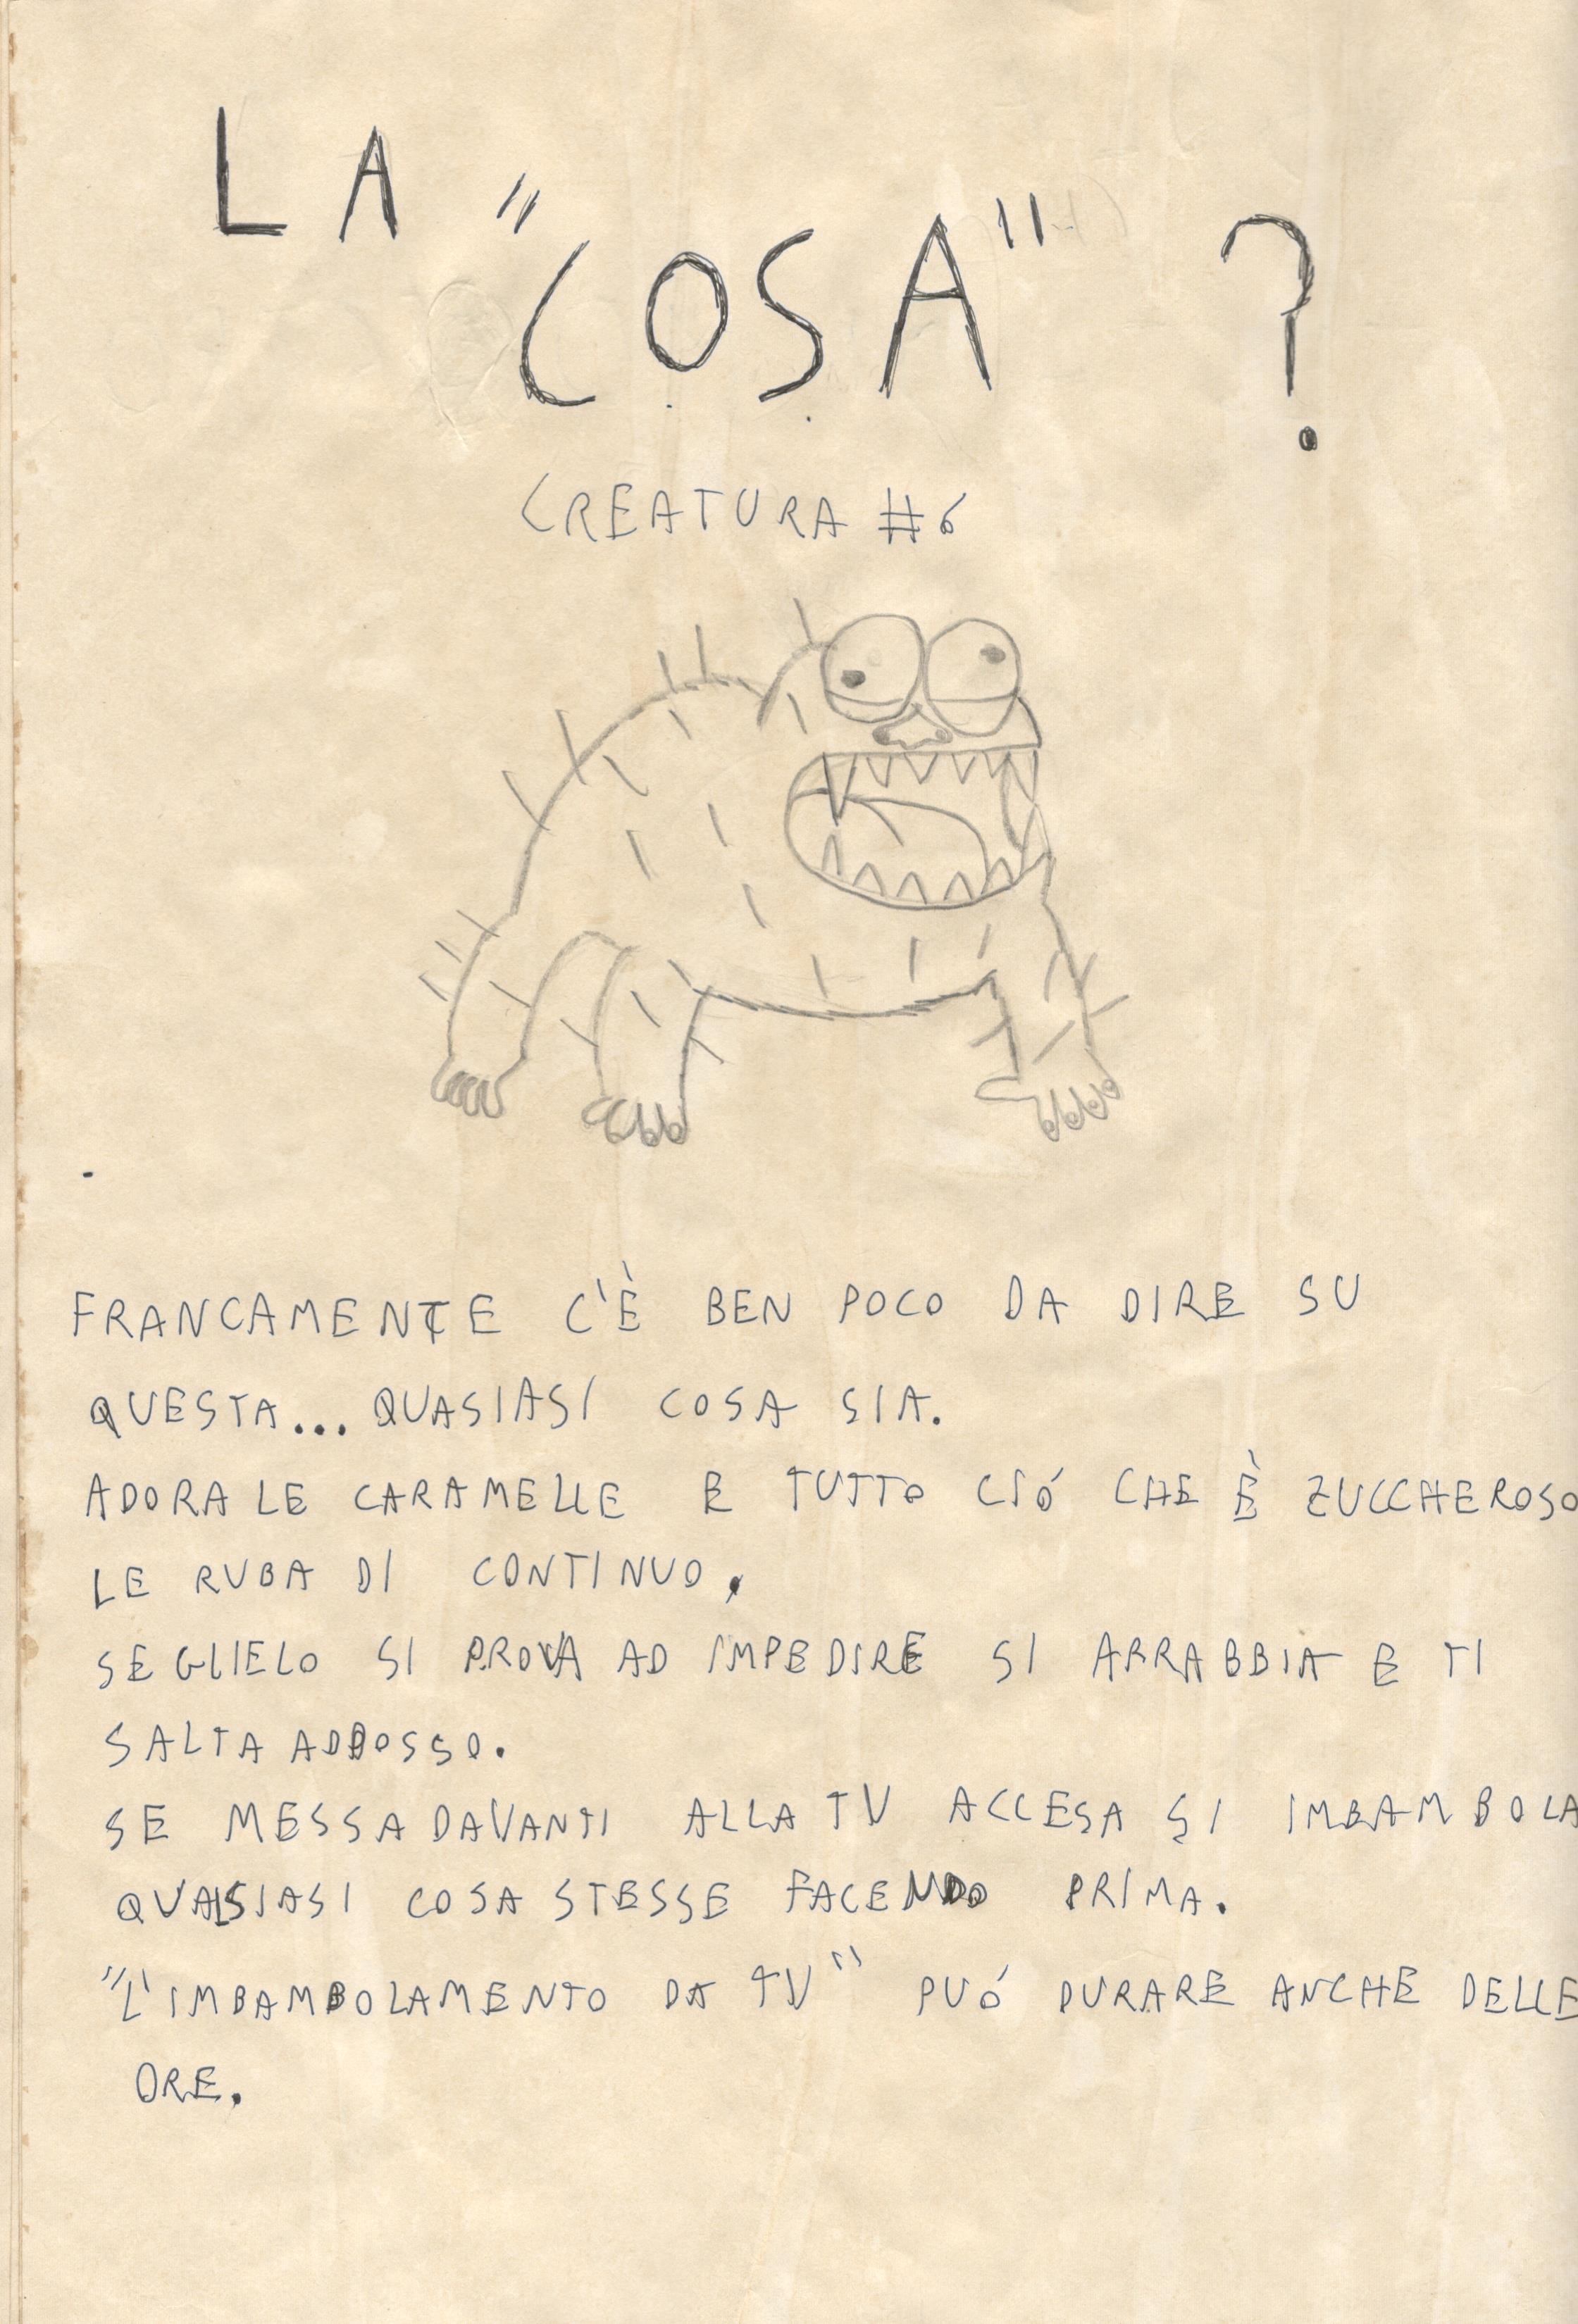 LA "COSA" ?
CREATURA #6
FRANCAMENTE C'È BEN POCO DA DIRE SU
QUESTA... QUASIASI COSA SIA.
ADORA LE CARAMELLE E TUTTO CIÓ CHE È ZUCCHEROSO
LE RUBA DI CONTINUO.
SE GLIELO SI PROVA AD IMPEDIRE SI ARRABBIA E TI
SALTA ADDOSSO.
SE MESSA DAVANTI ALLA TV ACCESA SI IMBAMBOLA
QUALSIASI COSA STESSE FACENDO PRIMA.
"L'IMBAMBOLAMENTO DA TV" PUÓ DURARE ANCHE DELLE
ORE.